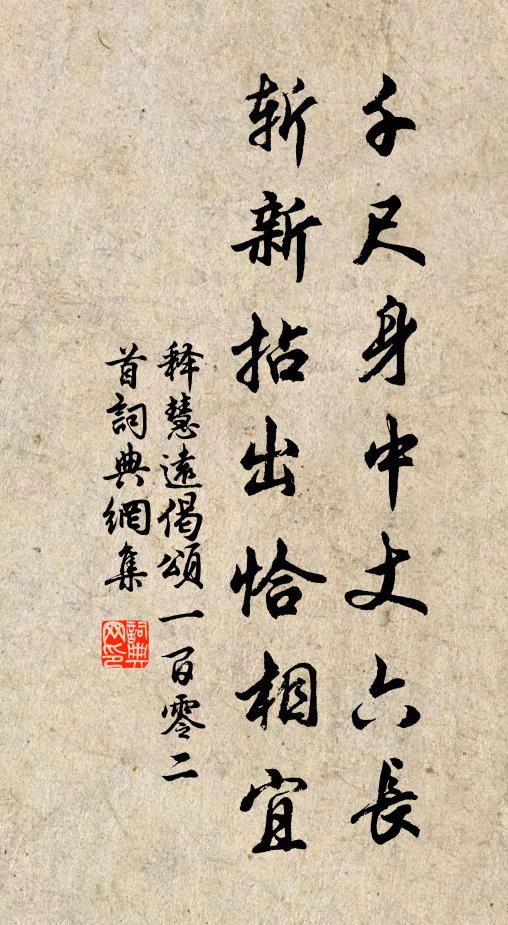 千尺身中丈六長
斬新拈出恰相宜
释慧遠偈頌一百零二
首詞典網集
詞典網印